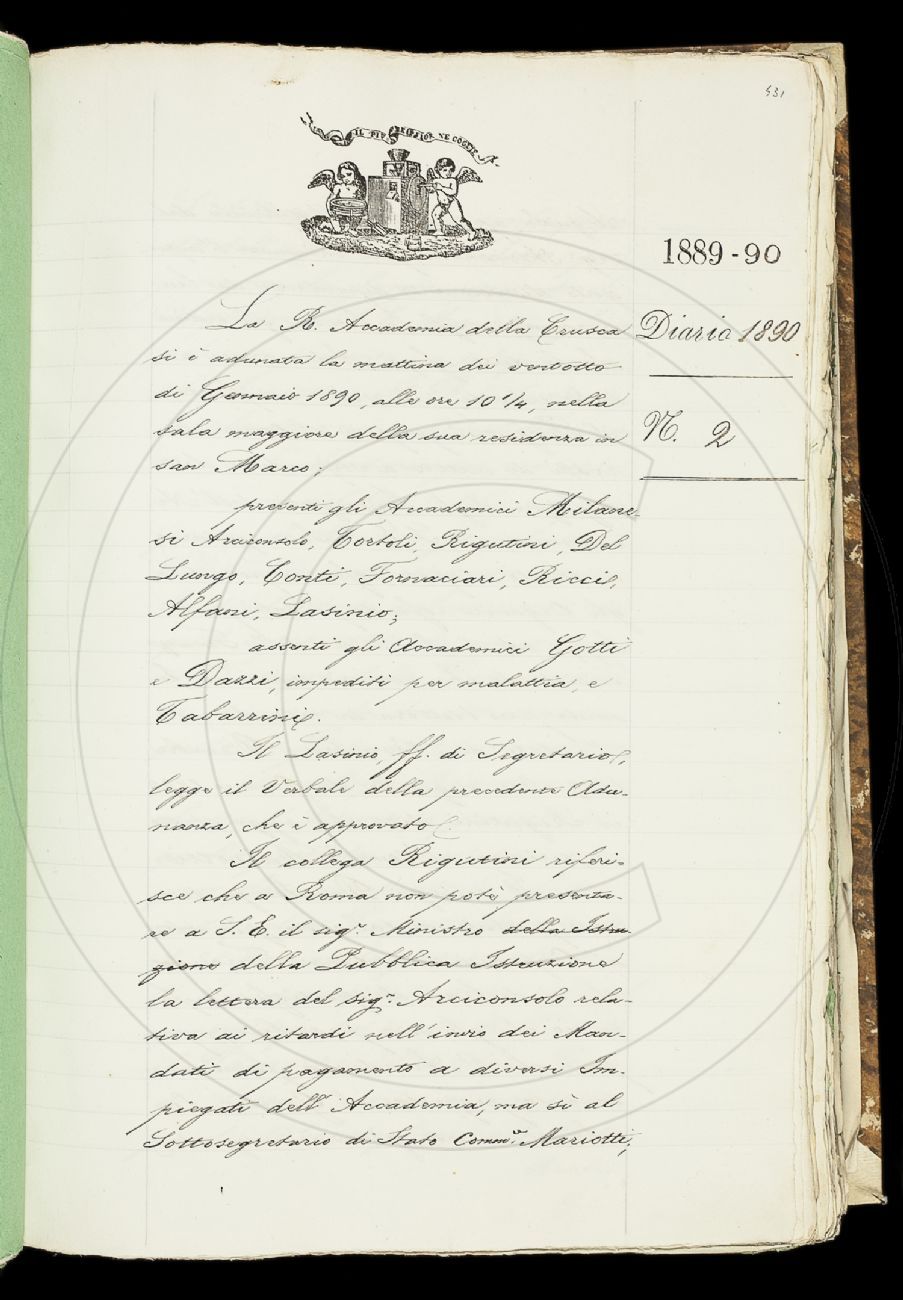 531
IL PIÙ BEL FIOR NE COGLIE
1889-90
Diario 1890
N. 2
La R. Accademia della Crusca
si è adunata la mattina dei ventotto
di Gennaio 1890, alle ore 10 1/4, nella
sala maggiore della sua residenza in
san Marco;
presenti gli Accademici Milane-
si Arciconsolo, Tortoli, Rigutini, Del
Lungo, Conti, Fornaciari, Ricci,
Alfani, Lasinio;
assenti gli Accademici Gotti
e Dazzi, impediti per malattia, e
Tabarrini.
Il Lasinio, ff. di Segretario,
legge il Verbale della precedente Adu-
nanza, che è approvato.
Il collega Rigutini riferi-
sce che a Roma non potè presenta-
re a S. E. il sig.r Ministro della Istru-
zione della Pubblica Istruzione
la lettera del sig.r Arciconsolo rela-
tiva ai ritardi nell'invio dei Man-
dati di pagamento a diversi Im-
piegati dell'Accademia, ma sì al
Sottosegretario di Stato Comm.e Mariotti,